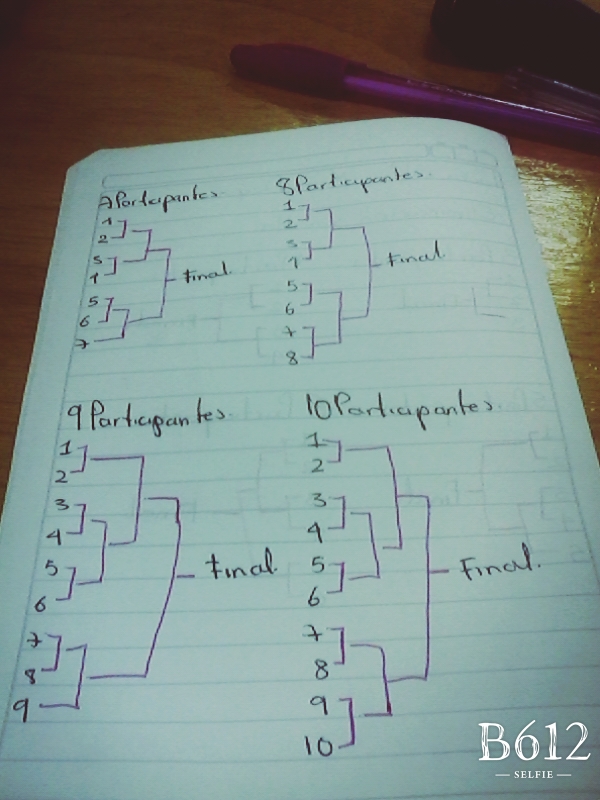 7 Participantes.
1
2
3
4
5
6
7
Final.
8 Participantes.
1
2
3
4
5
6
7
8
Final.
9 Participantes.
1
2
3
4
5
6
7
8
9
Final.
10 Participantes.
1
2
3
4
5
6
7
8
9
10
Final.
B612
— SELFIE —